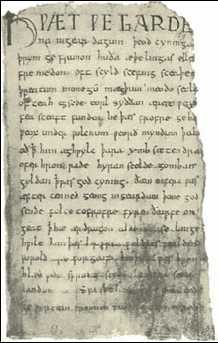 HǷÆT ǷE GARDE
na ingear dagum þeod cyninga
þrym ge frunon huða æþelingas elle
fre medon. oft scyld scefing sceaþe
þreatum monegū mægþum meodo setla
of teah egsode eorl syððan ærest ƿea
fea sceaft funden he þæs frofre geba
ƿeox under ƿolcnum ƿeorð myndum þah
oð þ him æghƿylc þara ymb sittendra
ofer hron rade hyran scolde gomban
gyldan þ ƿæs god cyning. ðæm eafera ƿæs
æfter cenned geong in geardum þone god
sende folce tofrofre fyren ðearfe on
geat þ hie ær drugon aldor ase. lange
hƿile him þæs
ƿorold
blæd ƿide sprang
landum